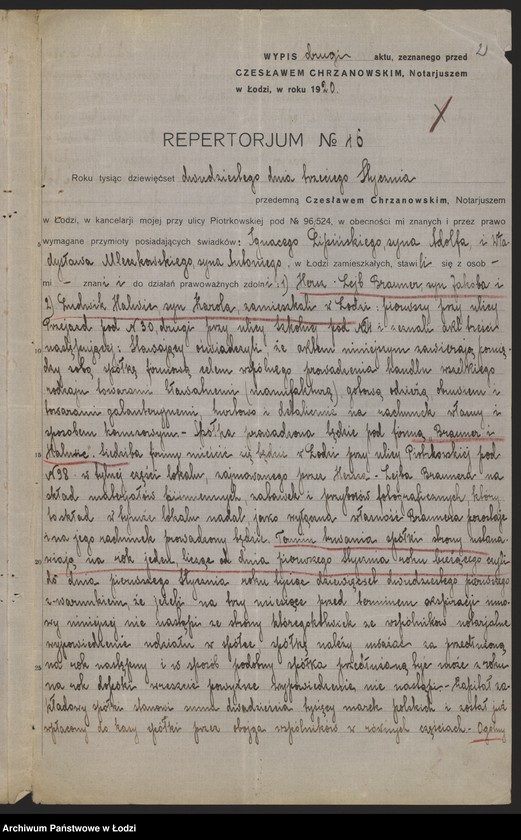 2
WYPIS drugi aktu, zeznanego przed
CZESŁAWEM CHRZANOWSKIM, Notarjuszem
w Łodzi, w roku 1920.
REPERTORJUM № 16
Roku tysiąc dziewięćset dwudziestego dnia trzeciego Stycznia
przedemną Czesławem Chrzanowskim, Notarjuszem
w Łodzi, w kancelarji mojej przy ulicy Piotrkowskiej pod № 96/524, w obecności mi znanych i przez prawo
5 wymagane przymioty posiadających świadków: Ignacego Lipińskiego, syna Adolfa, i Wła-
dysława Mleczkowskiego, syna Antoniego, w Łodzi zamieszkałych, stawili się z osob
mi znani i do działań prawoważnych zdolni: 1) Hersz-Lejb Brauner syn Jakóba i
2) Ludwik Halwic syn Karola, zamieszkali w Łodzi: pierwszy przy ulicy
Przejazd pod N 30, drugi przy ulicy Szkolnej pod i zeznali akt treści
10 następującej: Stawający oświadczyli, że aktem niniejszym zawierają pomię-
dzy sobą spółkę firmową celem wspólnego prowadzenia handlu wszelkiego
rodzaju towarami bławatnemi (manufakturą), gotową odzieżą, obuwiem i
towarami galanteryjnemi, hurtowo i detalicznie na rachunek własny i
sposobem komisowym. – Spółka prowadzona będzie pod firmą „Brauner i
15 Halwic". Siedziba firmy mieścić się będzie w Łodzi przy ulicy Piotrkowskiej pod
N 98 w tylnej części lokalu, zajmowanego przez Hersza-Lejba Braunera na
skład materjałów piśmiennych, zabawek i przyborów fotograficznych, który
to skład w tymże lokalu nadal, jako wyłączna własność Braunera pozostaje
i na jego rachunek prowadzony będzie. Termin trwania spółki strony ustana-
20 wiają na rok jeden, licząc od dnia pierwszego Stycznia roku bieżącego czyli
do dnia pierwszego Stycznia roku tysiąc dziewięćset dwudziestego pierwszego
z warunkiem, że jeżeli na trzy miesiące przed terminem ekspiracji umo-
wy niniejszej nie nastąpi ze strony któregokolwiek ze wspólników notarjalne
wypowiedzenie udziału w spółce, spółkę należy uważać za przedłużoną
25 na rok następny i w sposób podobny spółka przedłużaną być może z roku
na rok dopóki wreszcie powyższe wypowiedzenie nie nastąpi. – Kapitał za-
kładowy spółki stanowi suma dwadzieścia tysięcy marek polskich i został już
wpłacony do kasy spółki przez obojga wspólników w równych częściach. – Ogólny
Archiwum Państwowe w Łodzi